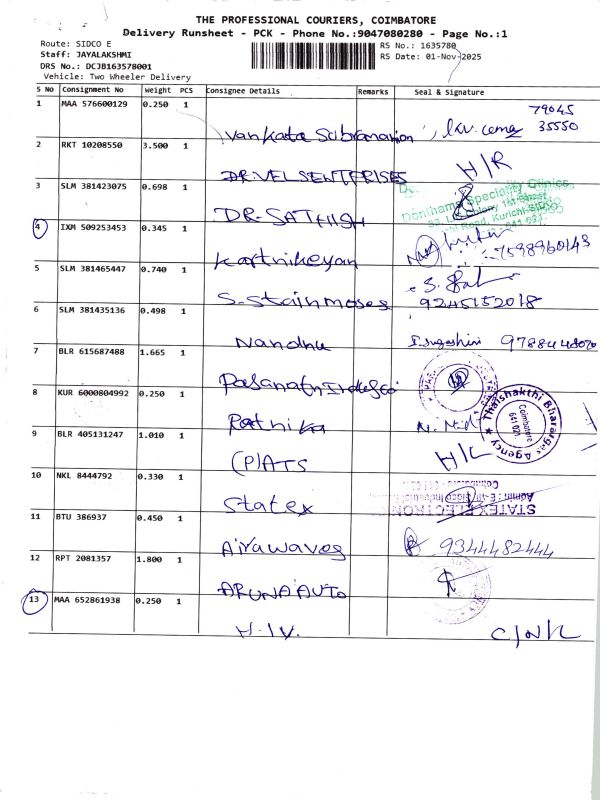 THE PROFESSIONAL COURIERS, COIMBATORE
Delivery Runsheet - PCK - Phone No.:9047080280 - Page No.:1
Route: SIDCO E
RS No.: 1635780
Staff: JAYALAKSHMI
RS Date: 01-Nov-2025
DRS No.: DCJB163578001
Vehicle: Two Wheeler Delivery
S No Consignment No Weight PCS Consignee Details Remarks Seal & Signature
1 MAA 576600129 0.250 1 Vankata Subramanion 79045 35550
2 RKT 10208550 3.500 1 DR.VELSENTERPRISES H/R
3 SLM 381423075 0.698 1 DR-SATHISH Speciality Clinics,
4 IXM 509253453 0.345 1 Karthikeyan 7598960143
5 SLM 381465447 0.740 1 S.Stainmoses 9245152018
6 SLM 381435136 0.498 1 Nandhu
7 BLR 615687488 1.665 1
8 KUR 6000804992 0.250 1 Rathika Thaishakthi Bharatgas Agency Coimbatore 641 021.
9 BLR 405131247 1.010 1 H/L
10 NKL 8444792 0.330 1 Statex STATEX ELECTRON
11 BTU 386937 0.450 1 Airawaves 9344482444
12 RPT 2081357 1.800 1 ARUNA AUTO
13 MAA 652861938 0.250 1 H.I.V. C/N/L